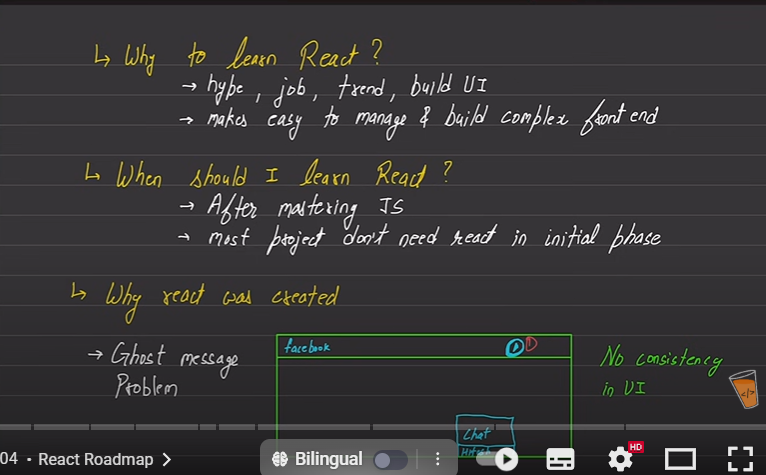 ↳ Why to learn React?
→ hype, job, trend, build UI
→ makes easy to manage & build complex front end
↳ When should I learn React?
→ After mastering JS
→ most project don't need react in initial phase
↳ Why react was created
→ Ghost message
Problem
facebook
1
No consistency
in UI
</>
Chat
Hitesh
04 • React Roadmap >
Bilingual
HD